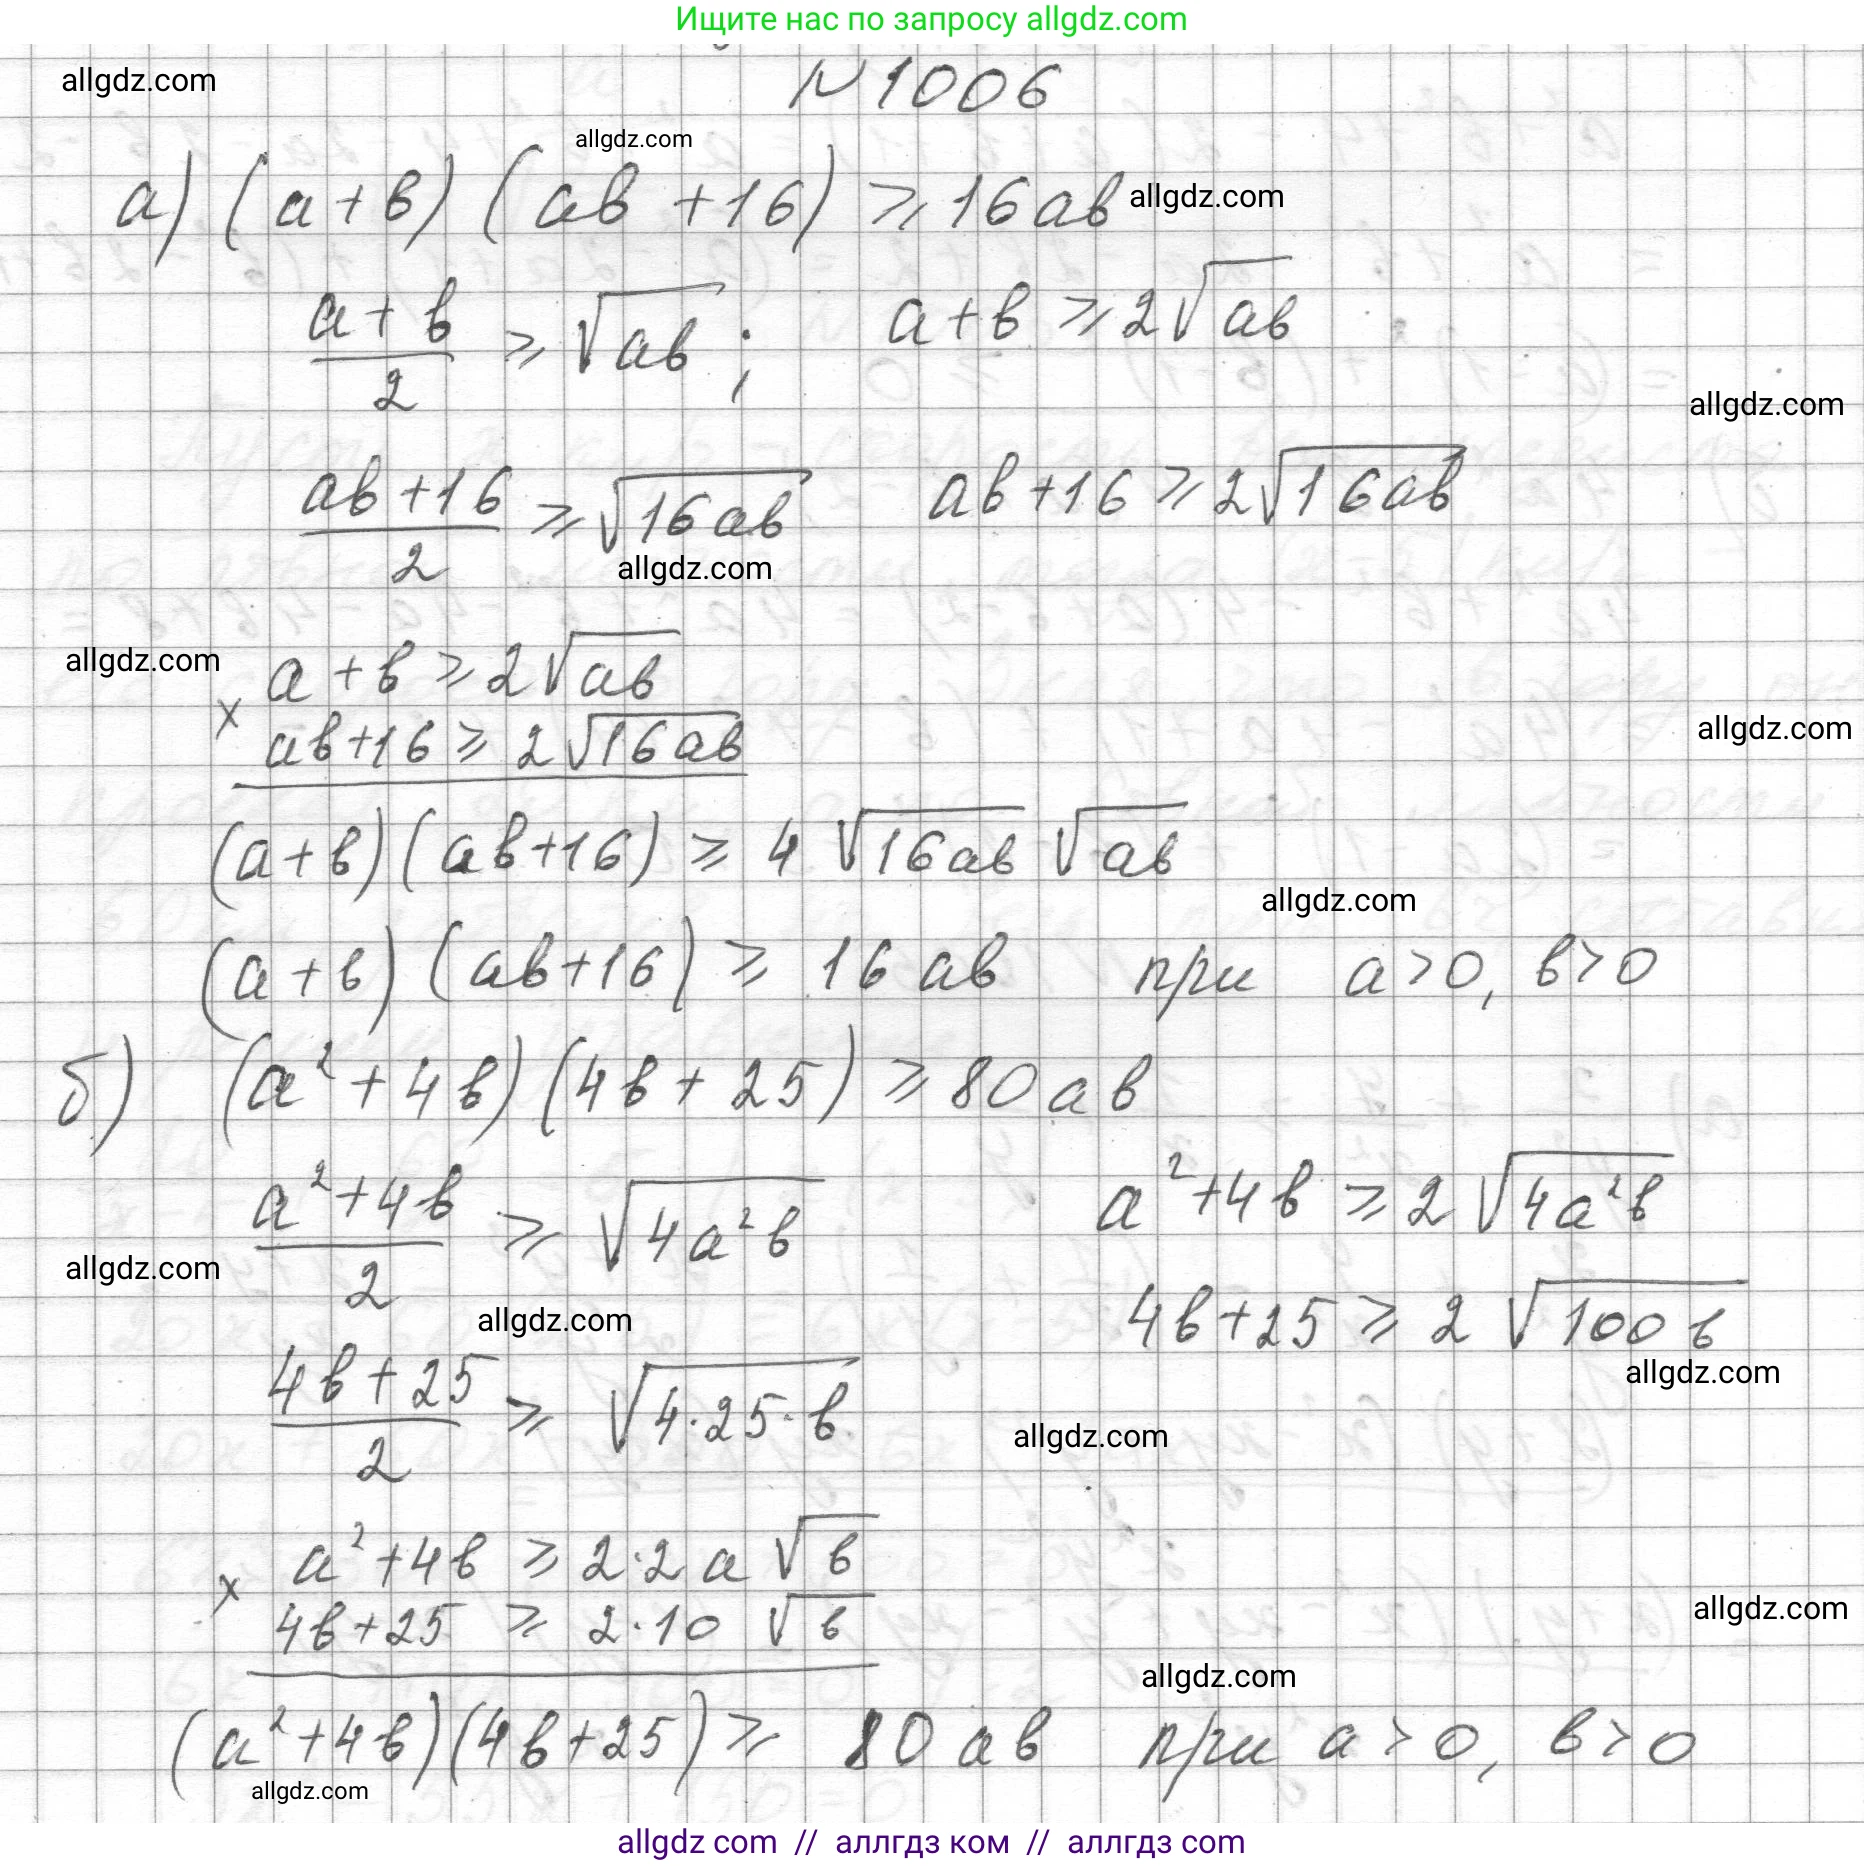 Ищите нас по запросу allgdz.com
allgdz.com
N 1006
allgdz.com
а) (a+b) (ab +16) ⩾ 16ab
allgdz.com
(a+b)/2 ⩾ √(ab) ; a+b ⩾ 2√(ab)
allgdz.com
(ab+16)/2 ⩾ √(16ab) ab+16 ⩾ 2√(16ab)
allgdz.com
allgdz.com
× a+b ⩾ 2√(ab)
allgdz.com
ab+16 ⩾ 2√(16ab)
(a+b)(ab+16) ⩾ 4 √(16ab) √(ab)
allgdz.com
(a+b) (ab+16) ⩾ 16 ab при a>0, b>0
б) (a²+4b)(4b+25) ⩾ 80ab
(a²+4b)/2 ⩾ √(4a²b) a²+4b ⩾ 2√(4a²b)
allgdz.com
allgdz.com
4b+25 ⩾ 2√(100b)
allgdz.com
(4b+25)/2 ⩾ √(4·25·b)
allgdz.com
× a²+4b ⩾ 2·2a√b
4b+25 ⩾ 2·10√b
allgdz.com
allgdz.com
(a²+4b)(4b+25) ⩾ 80ab при a>0, b>0
allgdz.com
allgdz com // аллгдз ком // аллгдз com